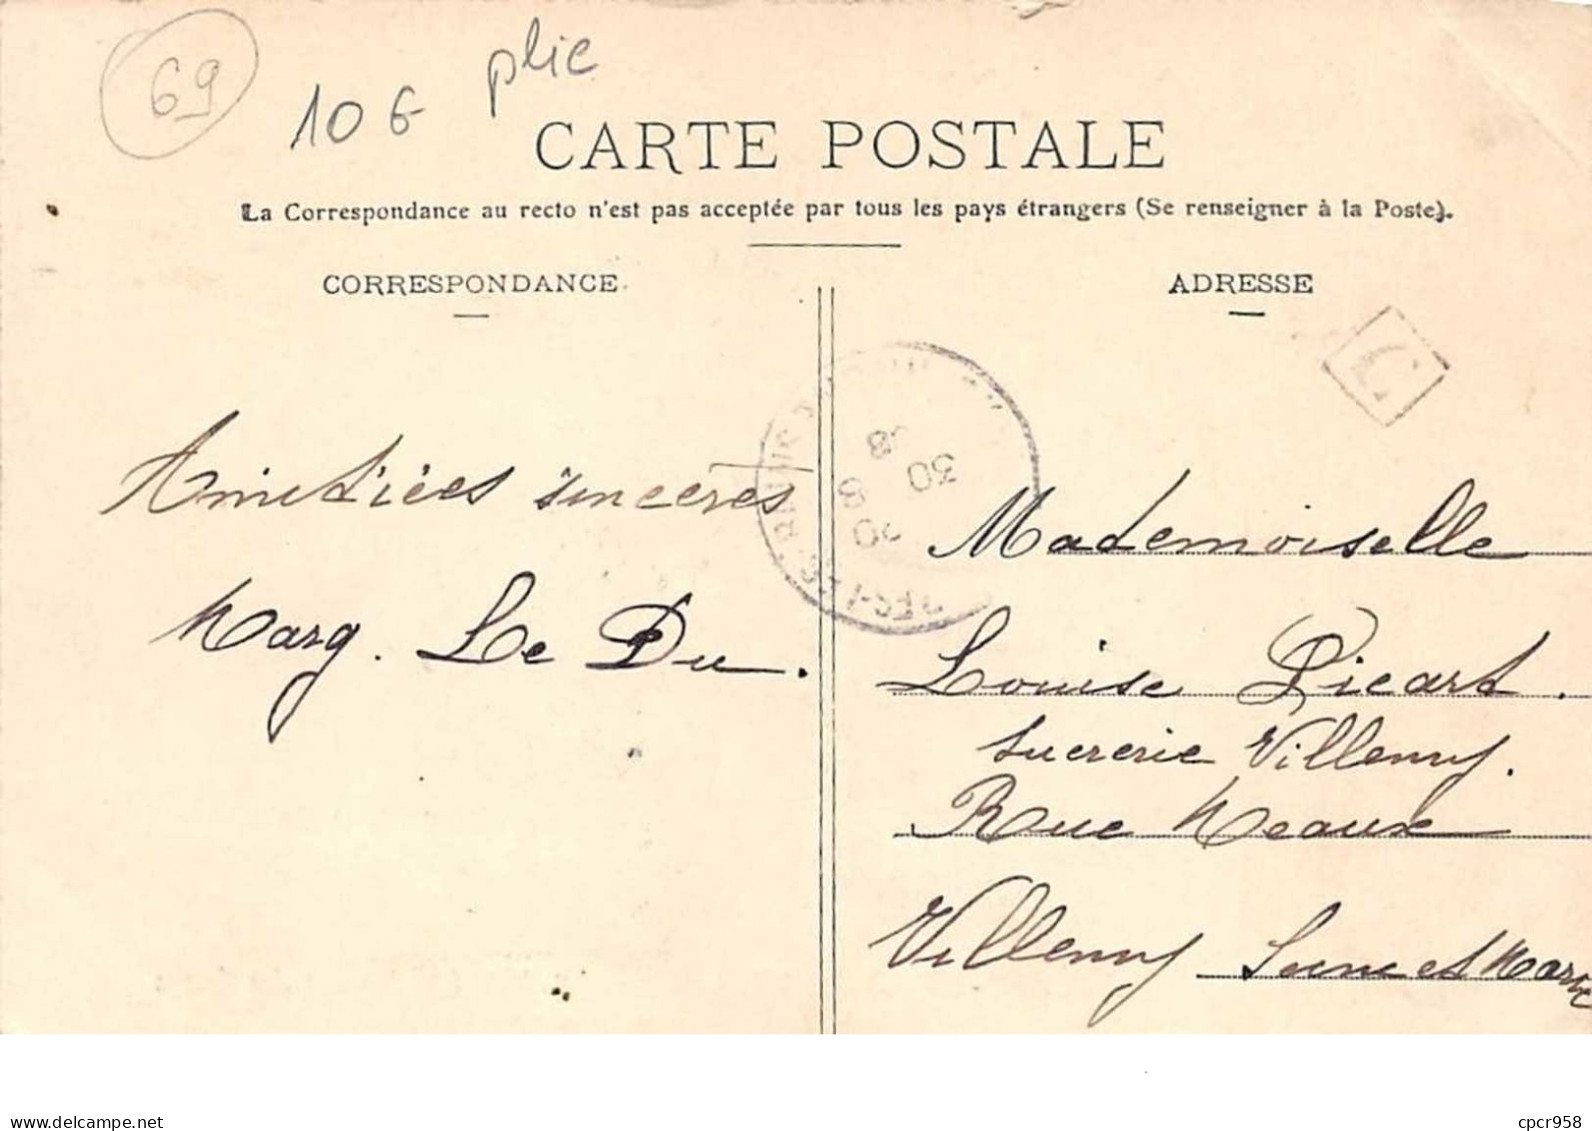 69
10 €
plie
CARTE POSTALE
La Correspondance au recto n'est pas acceptée par tous les pays étrangers (Se renseigner à la Poste).
CORRESPONDANCE
Amitiées sincères
Marg. Le Du.
ADRESSE
C
30
8
20
Mademoiselle
Louise Picart.
Sucrerie Villenoy.
Rue Meaux
Villenoy Seine et Marne
www.delcampe.net
cpcr958